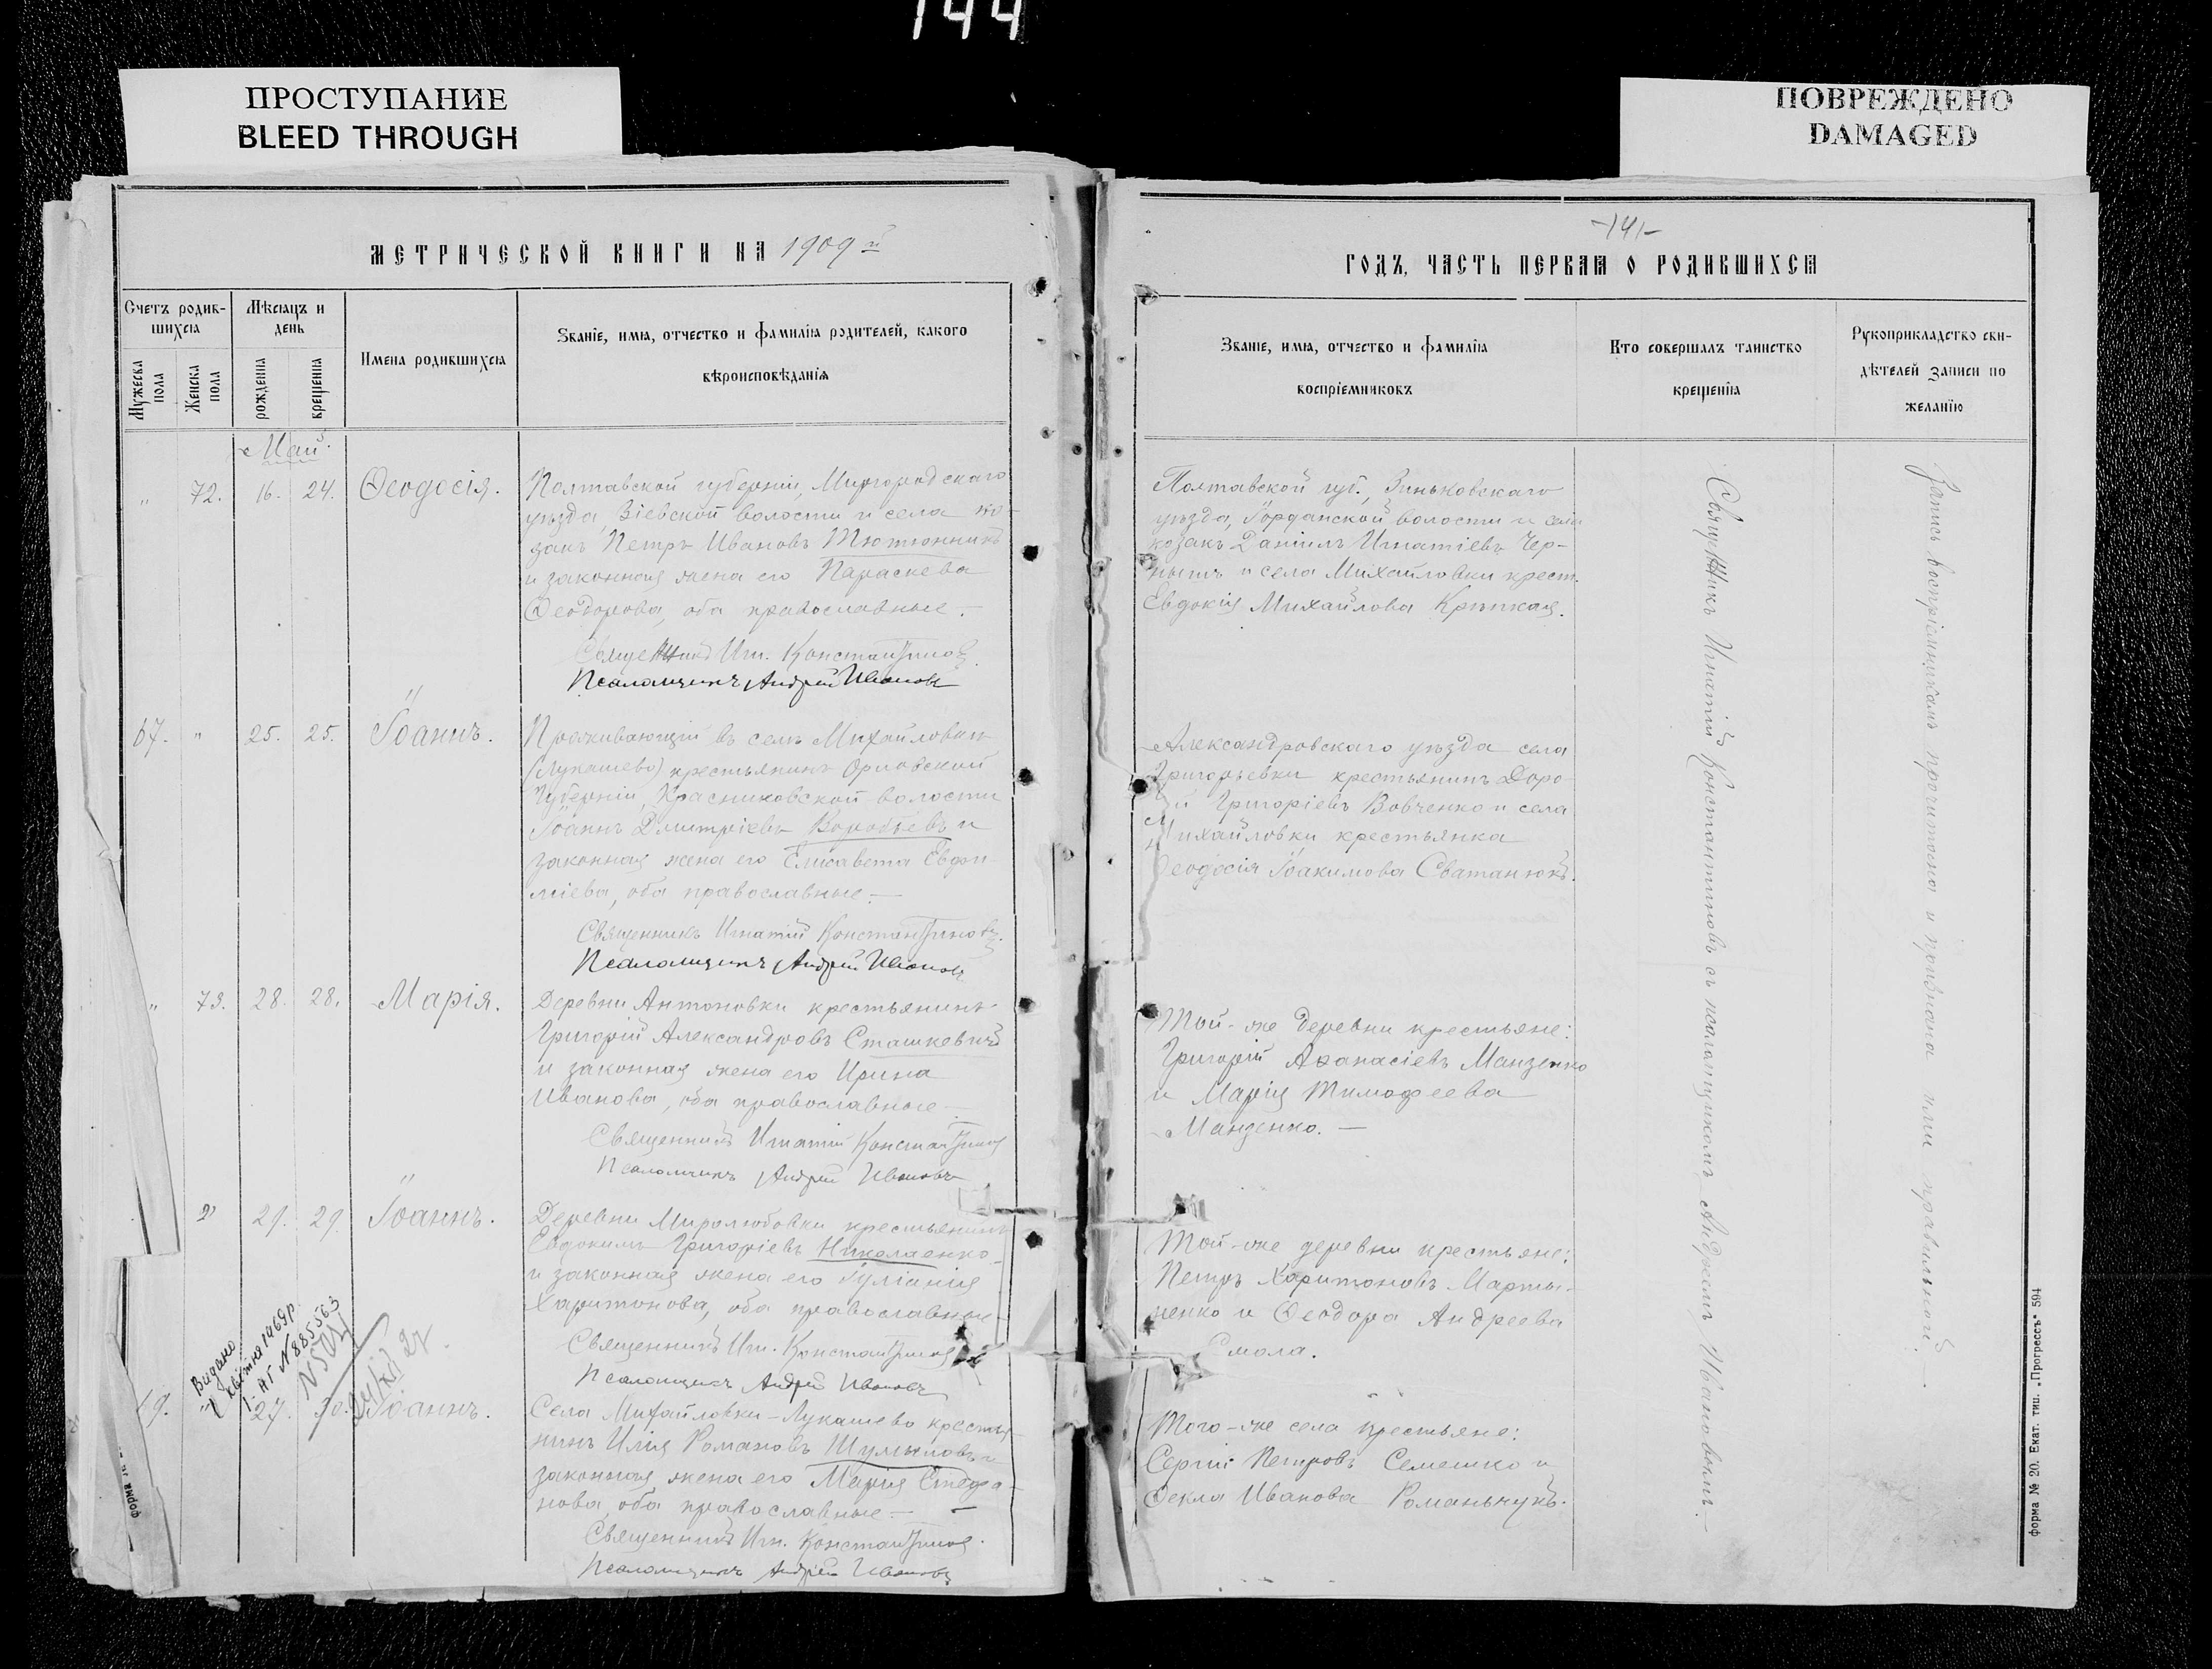 144
ПРОСТУПАНИЕ
BLEED THROUGH
ПОВРЕЖДЕНО
DAMAGED
МЕТРИЧЕСКОЙ КНИГИ НА 1909 й
Счетъ родив-
шихсѧ
Мужеска
пола
Женска
пола
Мѣсѧцъ и
день
рожденїѧ
крещенїѧ
Имена родившихсѧ
Званіе, имѧ, отчество и фамиліѧ родителей, какого
вѣроисповѣданіѧ
Май.
" 72. 16. 24. Ѳеодосія.
Полтавской губерніи, Миргородскаго
уѣзда, Зіевской волости и села ко-
закъ Петръ Ивановъ Тютюнникъ
и законная жена его Параскева
Ѳеодорова, оба православные.-
Священникъ Игн. Константиновъ.
Псаломщикъ Андрей Ивановъ
67. " 25. 25. Іоаннъ.
Проживающій въ селѣ Михайловки
(Лукашево) крестьянинъ Орловской
губерніи, Красниковской волости
Іоаннъ Дмитріевъ Воробьевъ и
законная жена его Елисавета Евфи-
міева, оба православные.-
Священникъ Игнатій Константиновъ.
Псаломщикъ Андрей Ивановъ
" 73. 28. 28. Марія.
Деревни Антоновки крестьянинъ
Григорій Александровъ Сташкевичъ
и законная жена его Ирина
Иванова, оба православные-
Священникъ Игнатій Константиновъ
Псаломщикъ Андрей Ивановъ
" 29. 29. Іоаннъ.
Деревни Миролюбовки крестьянинъ
Евдокимъ Григоріевъ Николаенко
и законная жена его Іуліанія
Харитонова, оба православные
Священникъ Игн. Константиновъ
Псаломщикъ Андрей Ивановъ
Видано
квітня 1969 р.
27. 30. Іоаннъ.
Села Михайловки-Лукашево крестья-
нинъ Илія Романовъ Шумиловъ и
законная жена его Марія Стефа-
нова, оба православные.-
Священникъ Игн. Константиновъ.
Псаломщикъ Андрей Ивановъ
-141-
ГОДЪ, ЧАСТЬ ПЕРВАѦ О РОДИВШИХСѦ
Званіе, имѧ, отчество и фамиліѧ
воспріемниковъ
Кто совершалъ таинство
крещенїѧ
Рукоприкладство сви-
дѣтелей записи по
желанїю
Полтавской губ., Зиньковскаго
уѣзда, волости и села
козакъ Даніилъ Игнатіевъ Чер-
нышъ и села Михайловки крест.
Евдокія Михайлова Крипкая.
Александровскаго уѣзда села
Григорьевки крестьянинъ Доро-
й Григоріевъ Вовченко и села
Михайловки крестьянка
Ѳеодосія Іоакимова Сватанюкъ.
Той-же деревни крестьяне:
Григорій Аѳанасіевъ Манзенко
и Марія Тимофеева
Манзенко.-
Той-же деревни крестьяне:
Петръ Харитоновъ Марты-
ненко и Ѳеодора Андреева
Смола.
Того-же села крестьяне:
Сергій Петровъ Семешко и
Ѳекла Иванова Романьчукъ.
Священникъ Игнатій Константиновъ съ псаломщикомъ Андреемъ Ивановымъ.-
Запись воспріемникамъ прочитана и признана ими правильной.-
форма № 20. Екат. тип. „Прогрессъ" 594